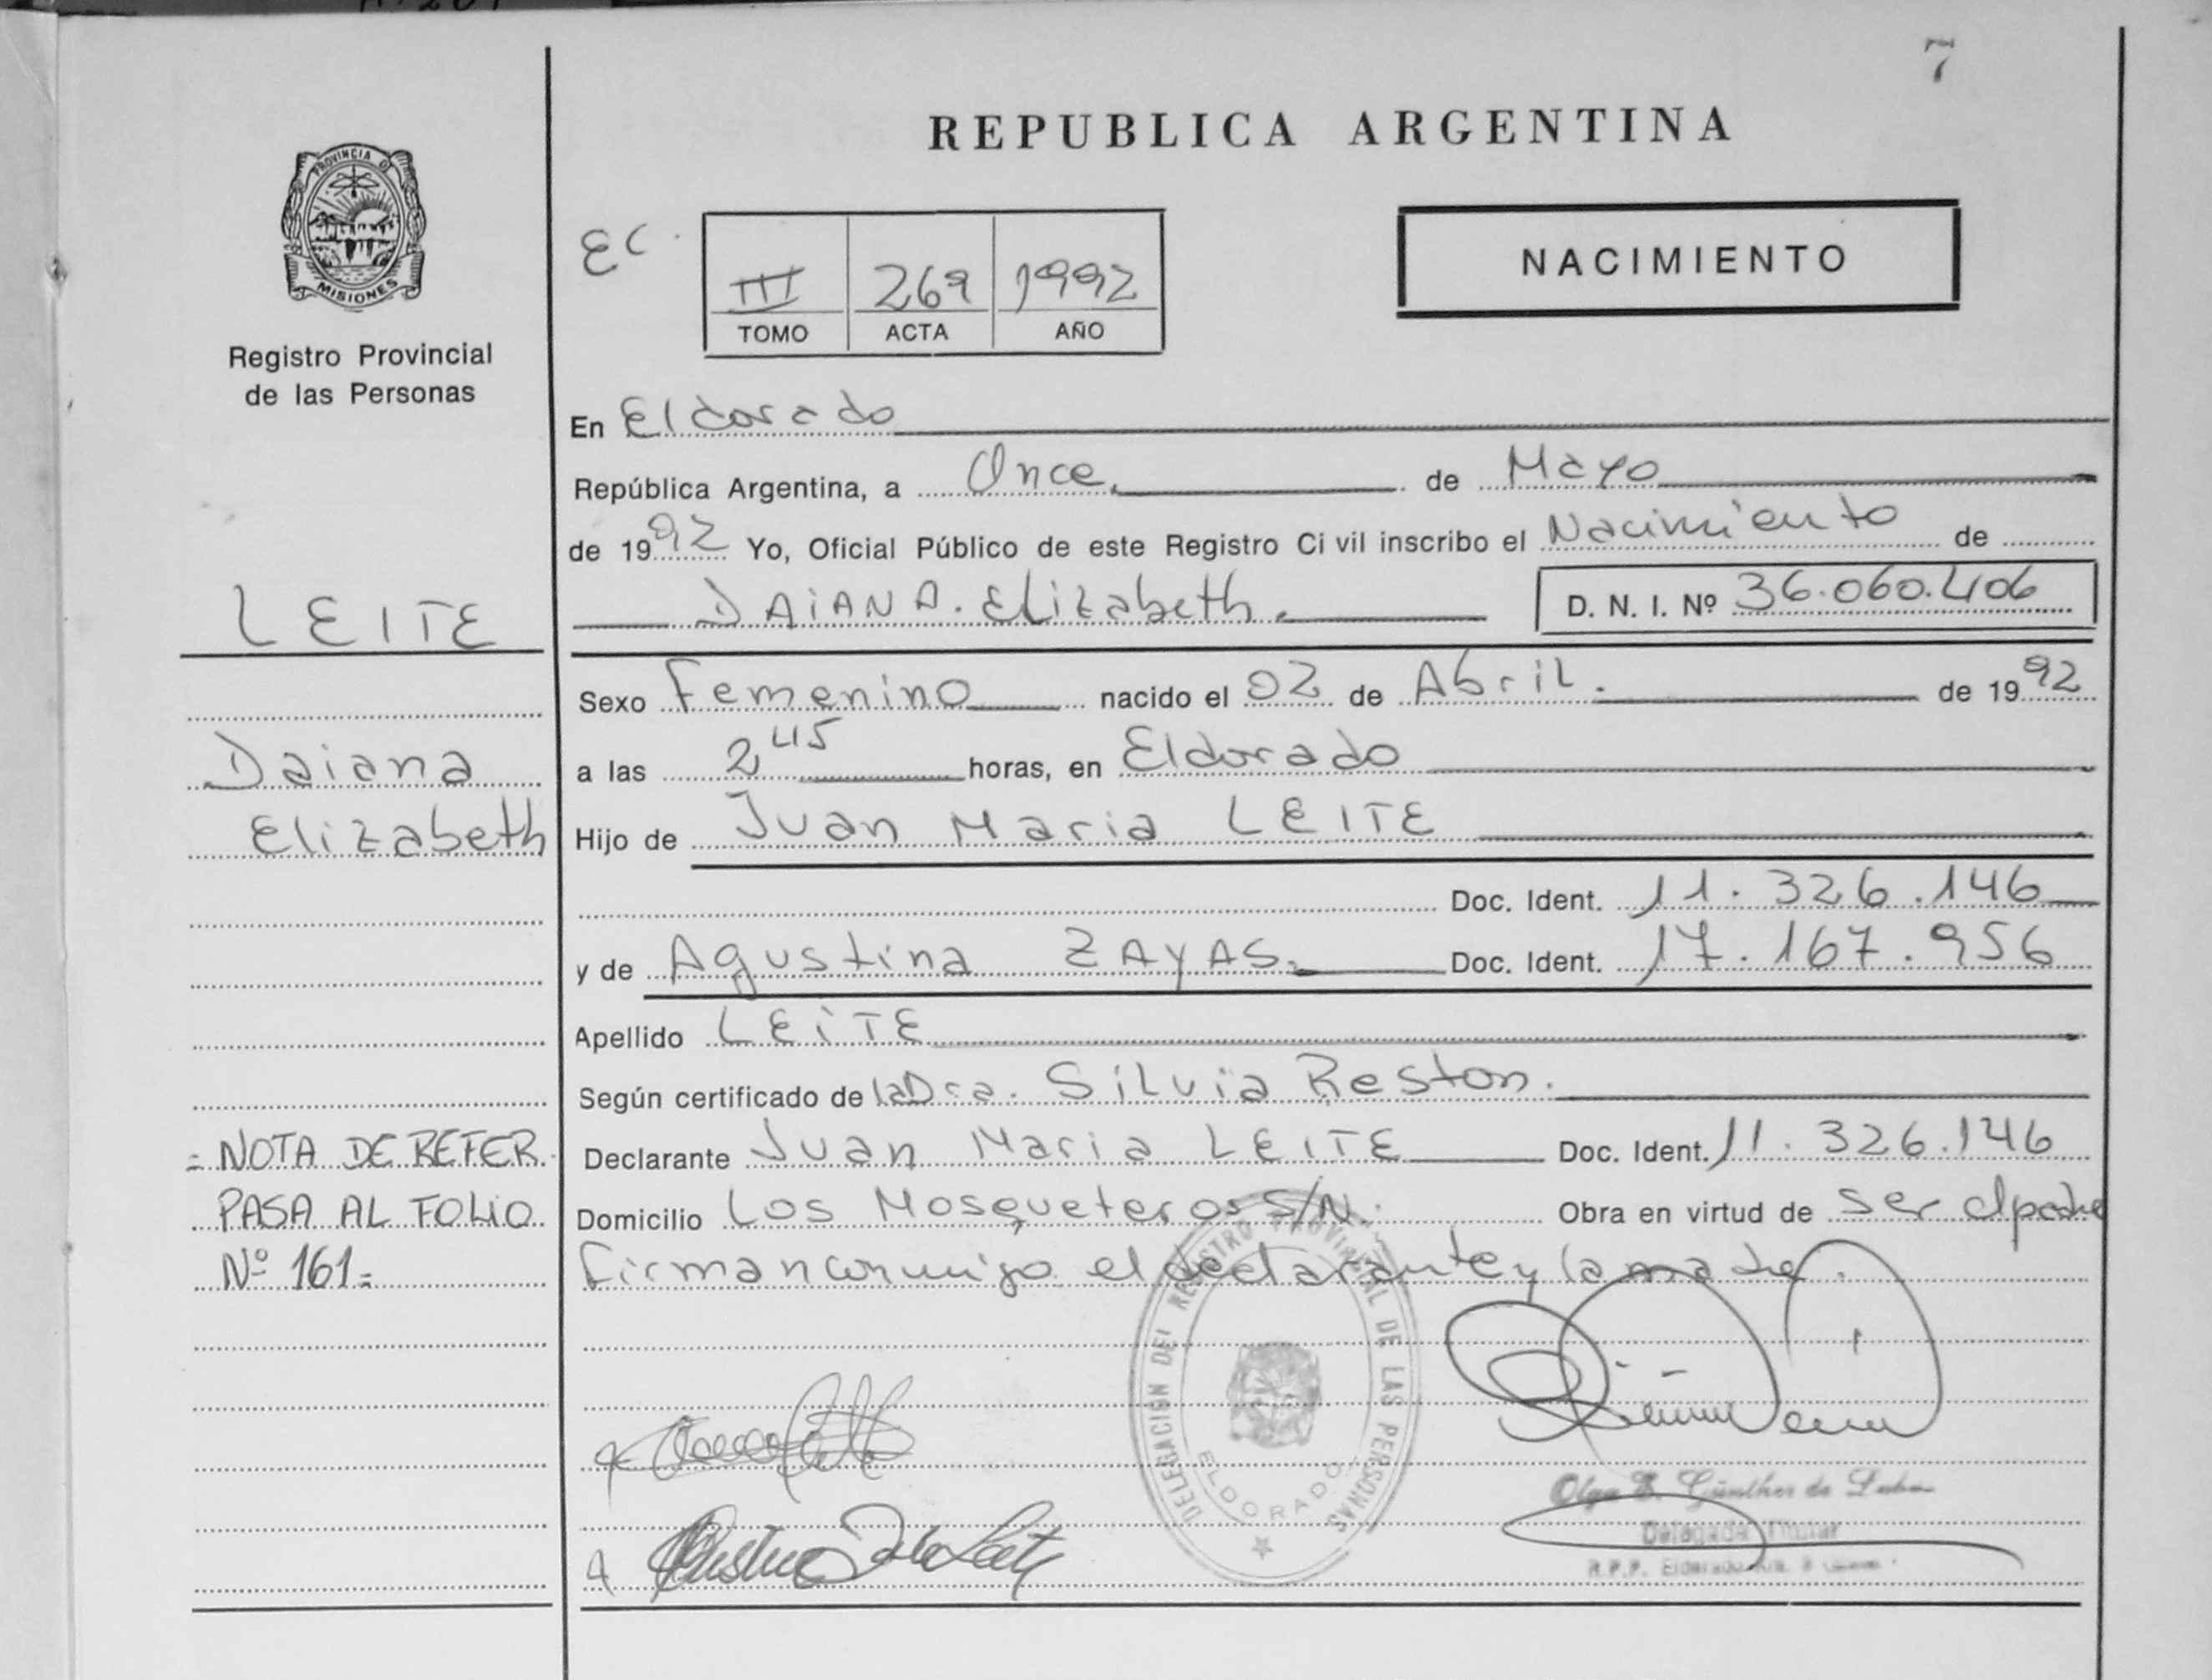 7
REPUBLICA ARGENTINA
PROVINCIA D
MISIONES
Registro Provincial
de las Personas
EC.
III 269 1992
TOMO ACTA AÑO
NACIMIENTO
En Eldorado
República Argentina, a Once de Mayo
de 1992 Yo, Oficial Público de este Registro Civil inscribo el Nacimiento de
DAIANA. Elizabeth. D. N. I. Nº 36.060.406
LEITE
Daiana
Elizabeth
Sexo Femenino nacido el 02 de Abril. de 1992
a las 2 45 horas, en Eldorado
Hijo de Juan Maria LEITE
Doc. Ident. 11.326.146
y de Agustina ZAYAS. Doc. Ident. 17.167.956
Apellido LEITE
Según certificado de la Dra. Silvia Reston.
Declarante Juan Maria LEITE Doc. Ident. 11.326.146
Domicilio Los Mosqueteros S/N. Obra en virtud de ser el padre
firman conmigo el declarante y la madre.
= NOTA DE REFER.
PASA AL FOLIO
Nº 161=
DELEGACION DEL REGISTRO PROVINCIAL DE LAS PERSONAS
ELDORADO
Olga E. Günther de
Delegada Titular
R.P.P. Eldorado